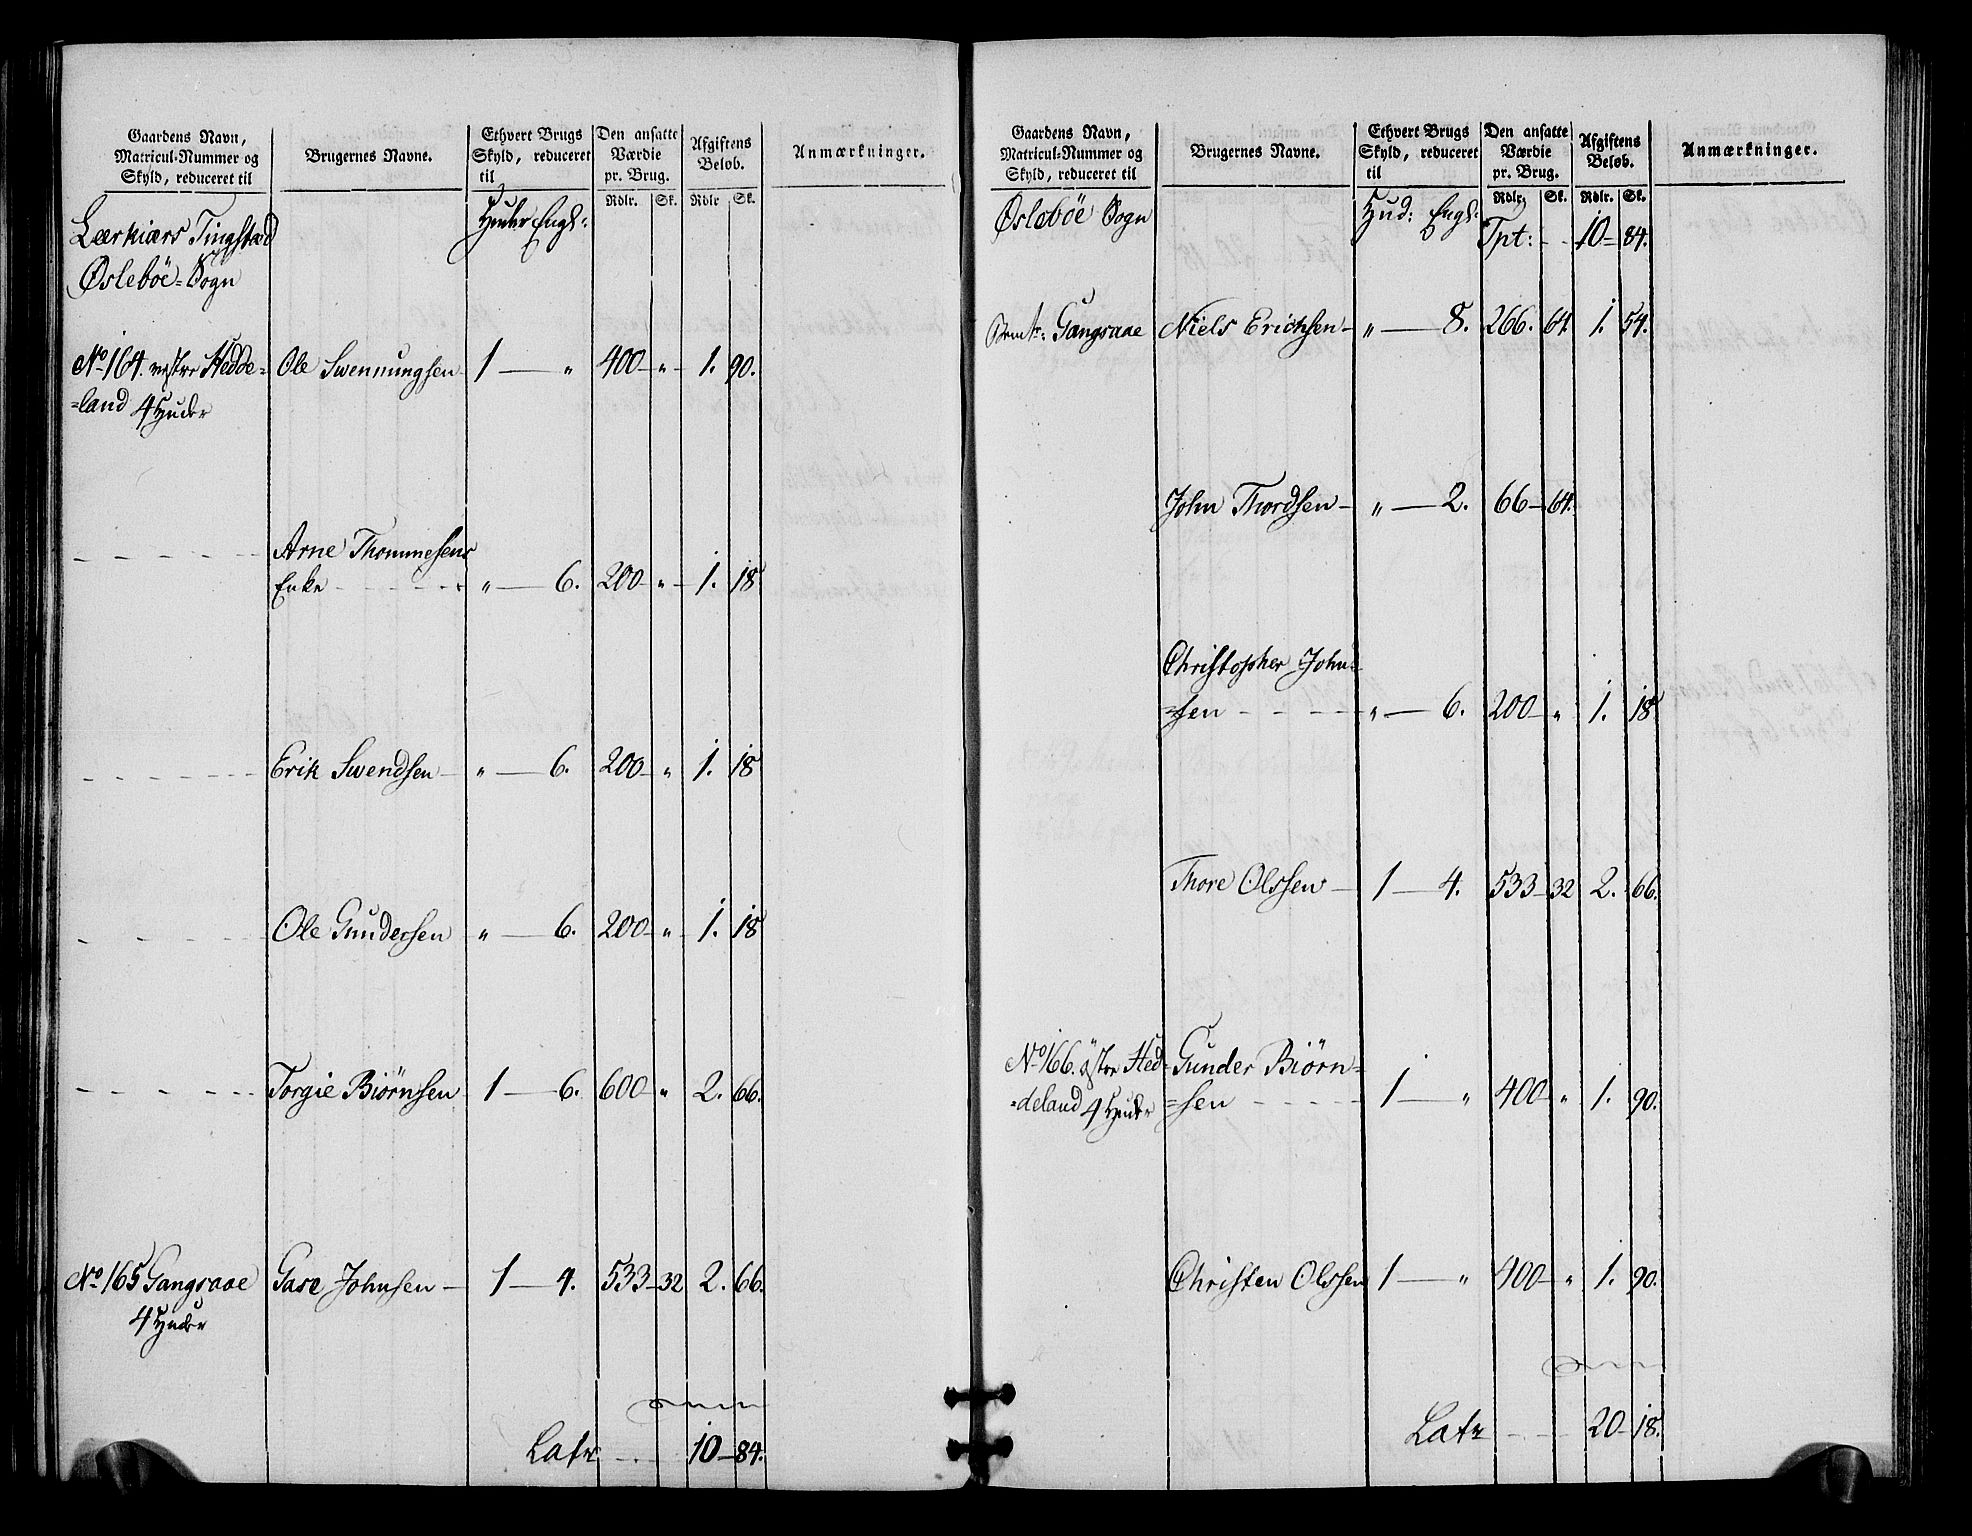 Gaardens Navn, Matricul-Nummer og Skyld, reduceret til | Brugernes Navne. | Ethvert Brugs Skyld, reduceret til | Den ansatte Værdie pr. Brug. | Afgiftens Beløb. | Anmærkninger.
Rdlr. Sk. Rdlr Sk.
Lærkiærs Tingstæd Huder Engl:
Øsleböe=Sogn
No 164. vestre Hedde= Ole Swennungsen 1 — " 400 " 1. 90.
=land 4 Huder
Arne Thommesens
Enke " — 6. 200 " 1. 18.
Erik Swendsen " — 6. 200 " 1. 18
Ole Gundersen " — 6. 200 " 1. 18
Torgie Biörnsen 1 — 6. 600 " 2. 66.
No 165 Gangsaae Gase Johnsen 1 — 4. 533 32 2. 66.
4 Huder
Latr 10 84.
Gaardens Navn, Matricul-Nummer og Skyld, reduceret til | Brugernes Navne. | Ethvert Brugs Skyld, reduceret til | Den ansatte Værdie pr. Brug. | Afgiftens Beløb. | Anmærkninger.
Rdlr. Sk. Rdlr. Sk.
Øslebóe Sogn Hud: Engl: Tpt: 10 84.
Gangsaae Niels Erichsen " — 8. 266. 64. 1. 54.
John Thordsen " — 2. 66 64.
Christopher John=
=sen " — 6. 200 " 1. 18
Thore Olssen 1 — 4. 533 32 2. 66.
No 166. östre Hed= Gunder Biörn=
=deland 4 Huder =sen 1 — " 400 " 1. 90.
Christen Olssen 1 — " 400 " 1. 90.
Latr 20 18.